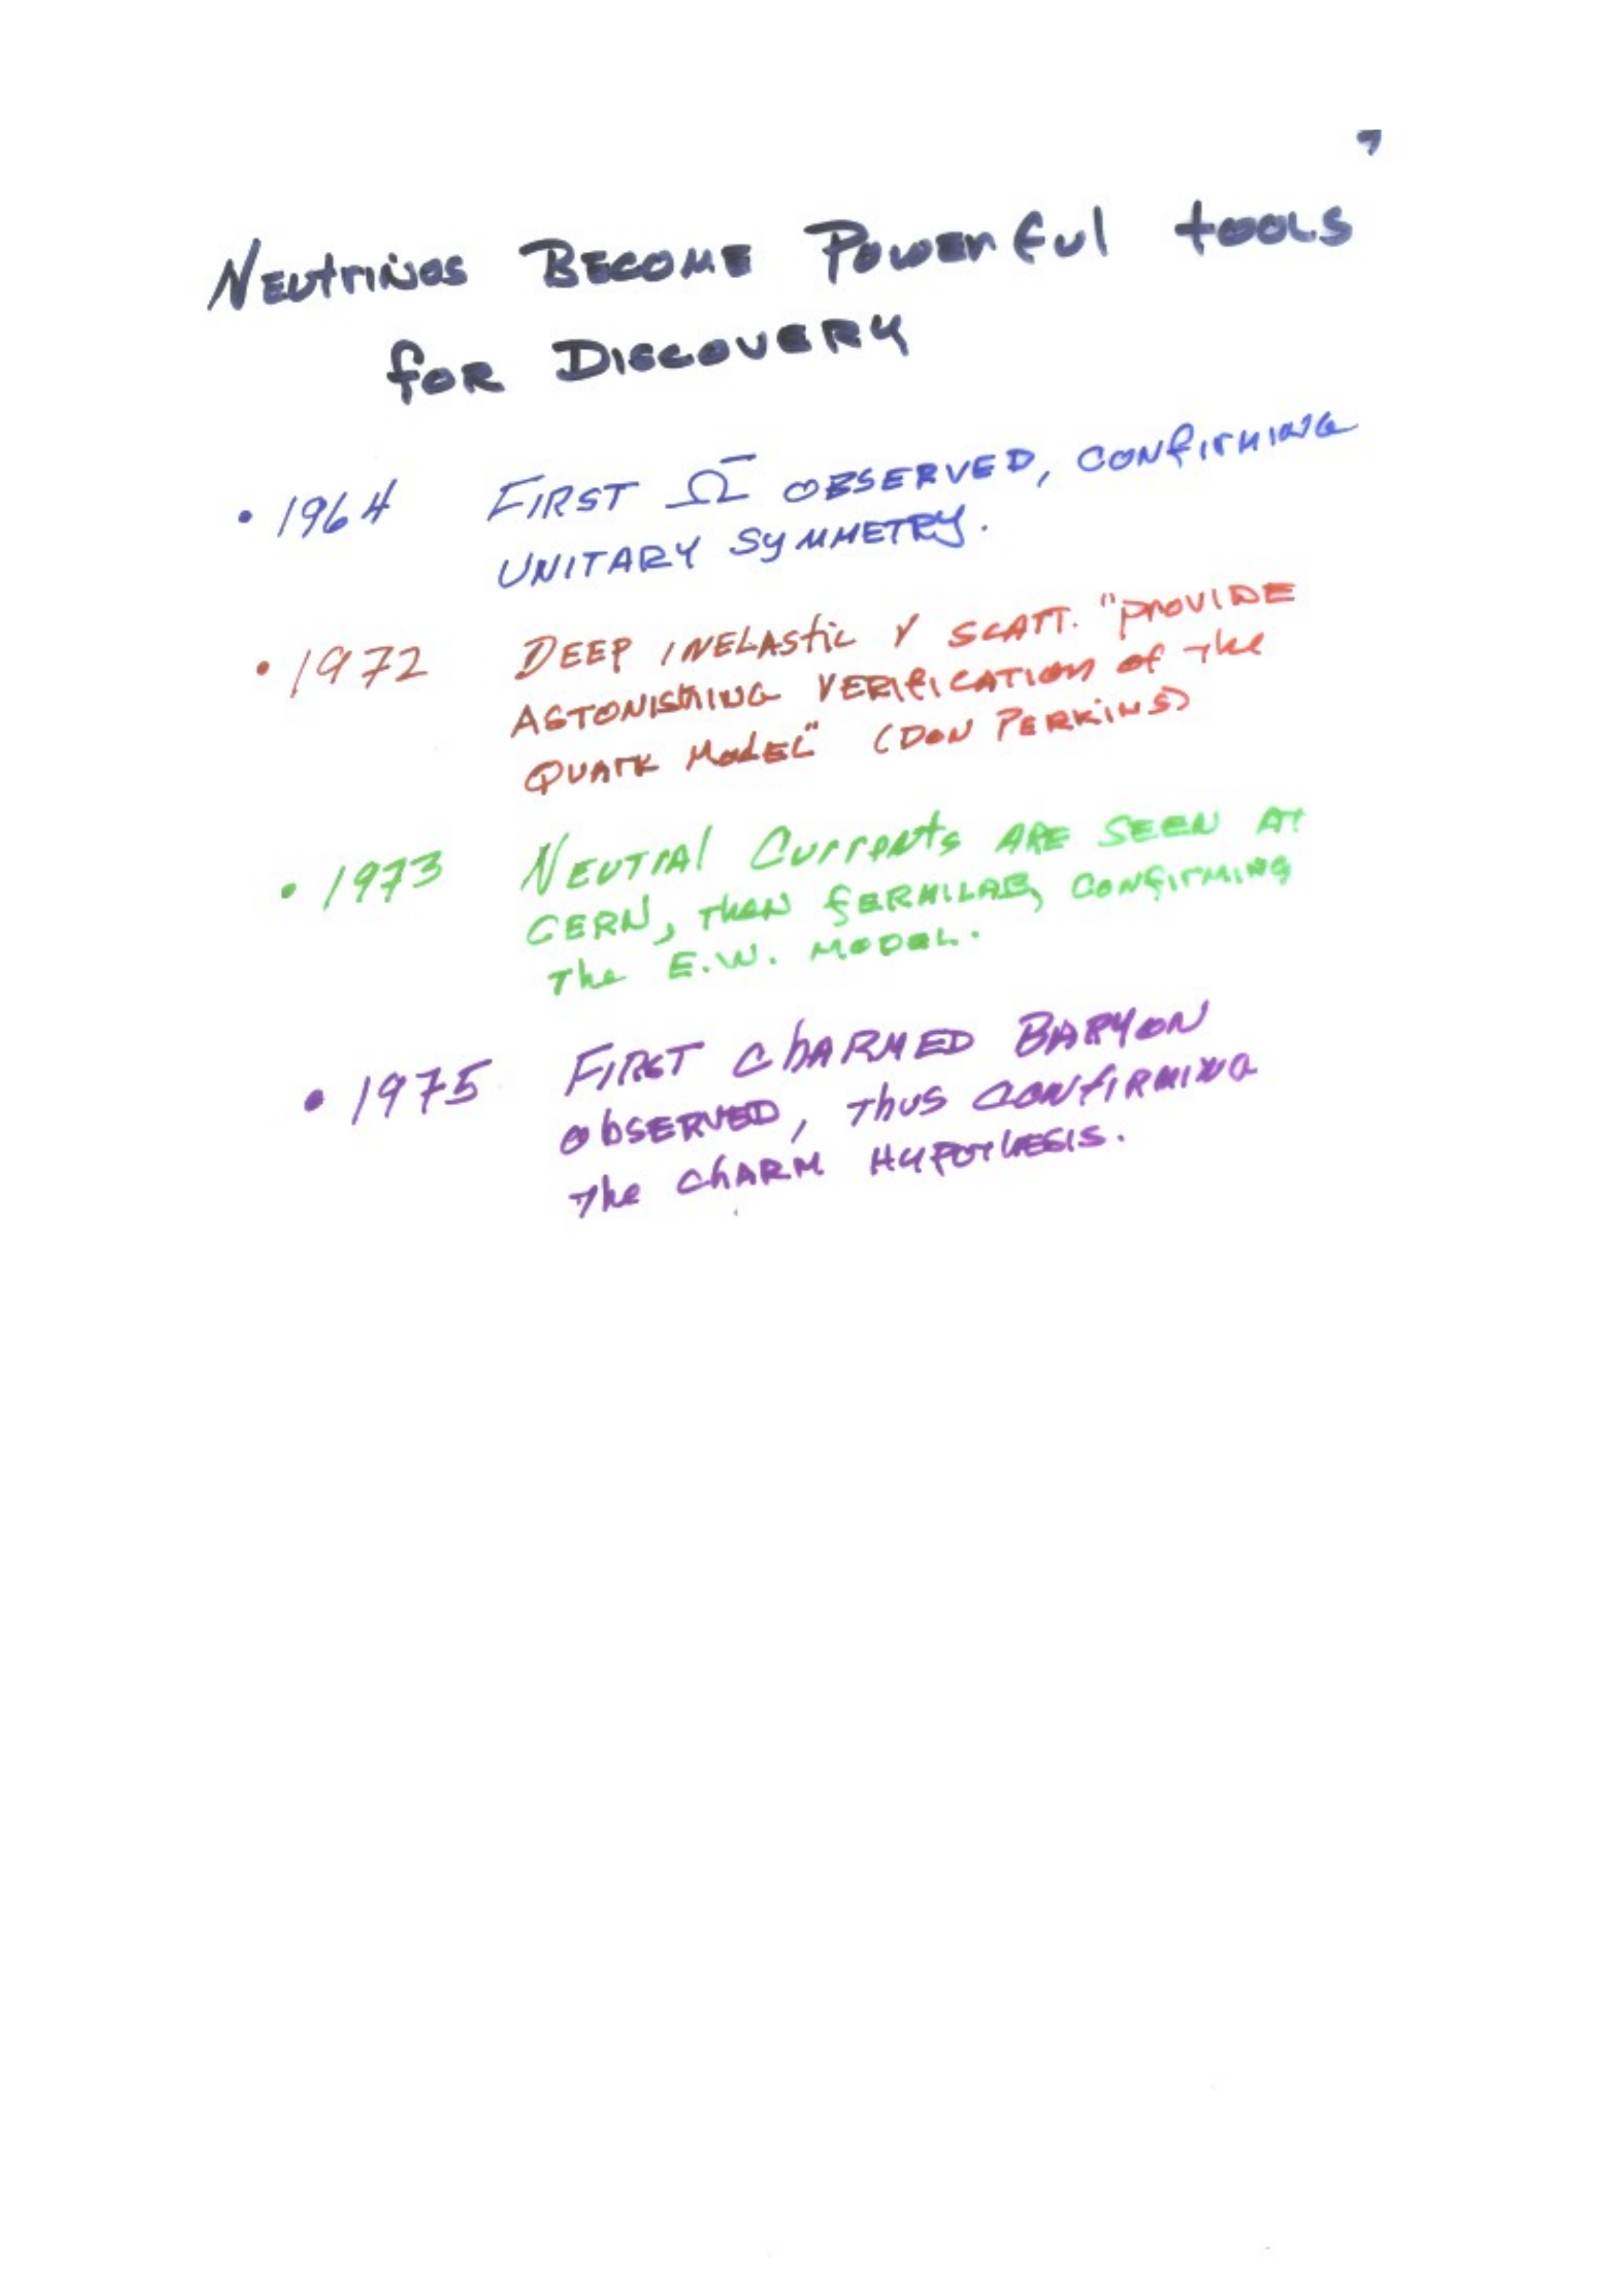 7
Neutrinos Become Powerful tools
for Discovery
• 1964 First Ω⁻ observed, confirming
unitary symmetry.
• 1972 Deep inelastic ν scatt. "provide
astonishing verification of the
quark model" (Don Perkins)
• 1973 Neutral Currents are seen at
CERN, then Fermilab, confirming
the E.W. model.
• 1975 First charmed Baryon
observed, thus confirming
the charm hypothesis.